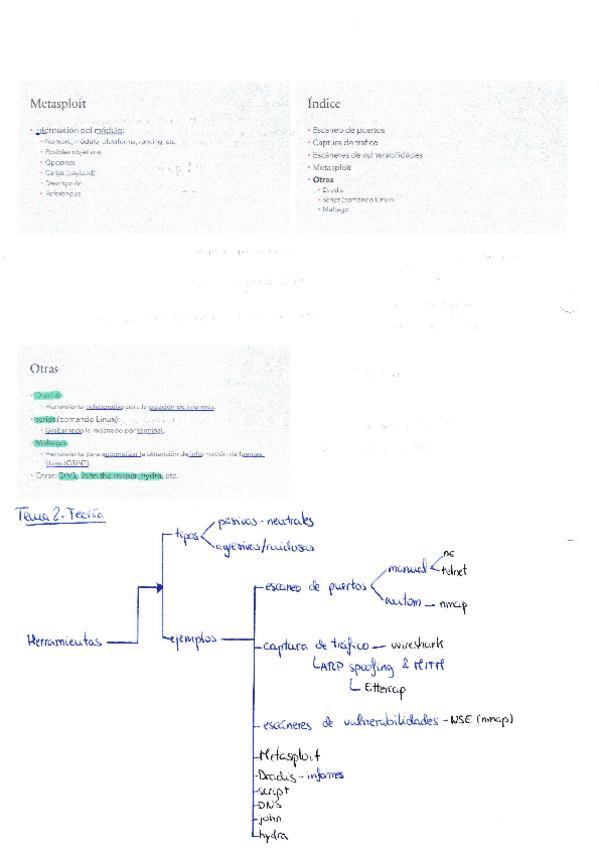 Metasploit
• Información del módulo:
• Nombre, módulo, plataforma, ranking, etc.
• Posibles objetivos
• Opciones
• Carga (payload)
• Descripción
• Referencias
Índice
• Escaneo de puertos
• Captura de tráfico
• Escáneres de vulnerabilidades
• Metasploit
• Otras
• Dradis
• script (comando Linux)
• Maltego
Otras
• Dradis:
• Herramienta colaborativa para la creación de informes.
• script (comando Linux):
• Grabar todo lo mostrado por terminal.
• Maltego:
• Herramienta para automatizar la obtención de información de fuentes
(OSINT).
• Otras: DNS, John the ripper, hydra, etc.
Tema 2. Teoría
Herramientas
tipos
pasivas - neutrales
agresivas/ruidosas
ejemplos
escaneo de puertos
manual
nc
telnet
autom
nmap
captura de tráfico — wireshark
ARP spoofing & MITM
Ettercap
escáneres de vulnerabilidades - NSE (nmap)
Metasploit
Dradis - informes
script
DNS
john
hydra